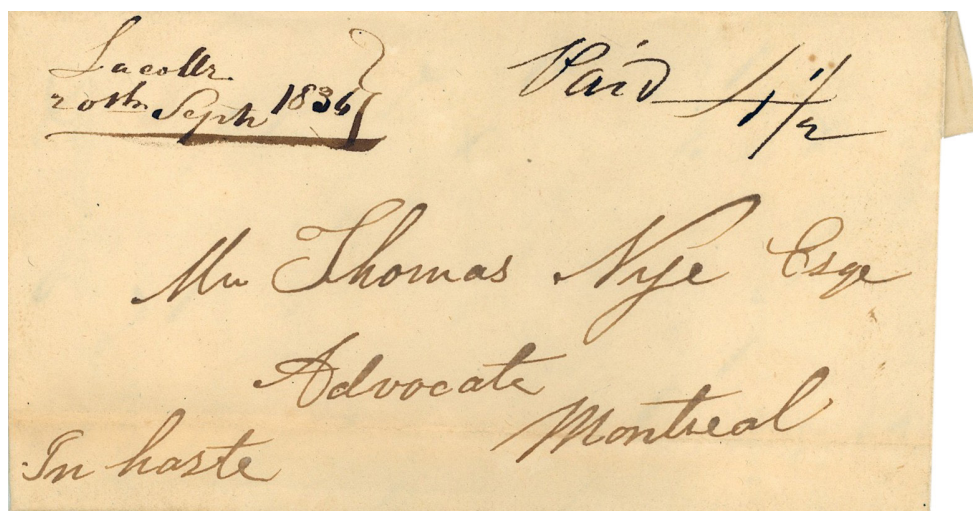 Lacolle
20th Sept 1836
Paid 4 1/2
Mr Thomas Nye Esqe
Advocate
Montreal
In haste